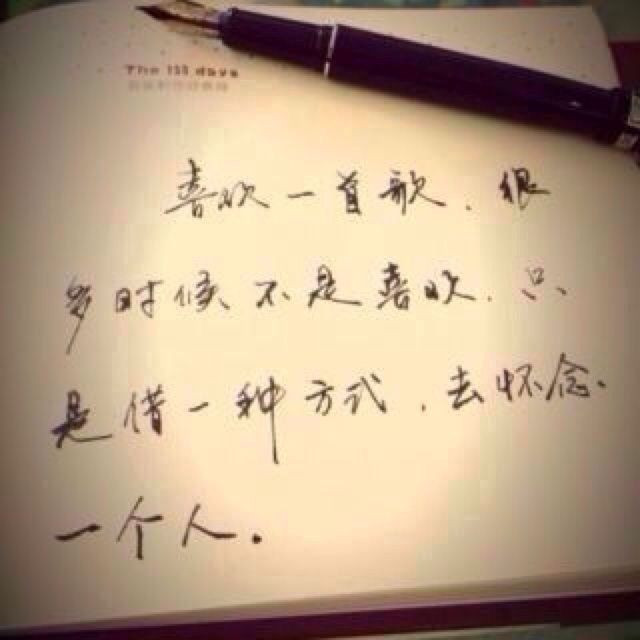 The 155 days
喜欢一首歌,很
多时候不是喜欢,只
是借一种方式,去怀念
一个人.